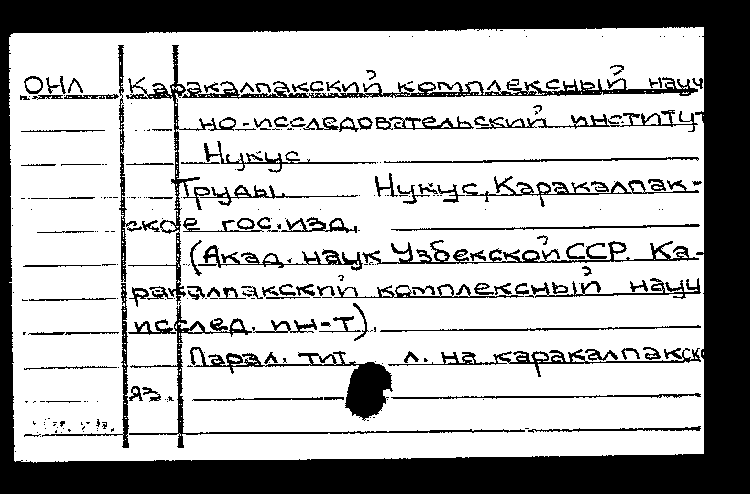 ОНЛ Каракалпакский комплексный науч
но-исследовательский институт
Нукус.
Труды. Нукус, Каракалпак-
ское гос.изд.
(Акад. наук Узбекской ССР. Ка-
ракалпакский комплексный науч
исслед. ин-т).
Парал. тит. л. на каракалпакско
яз.